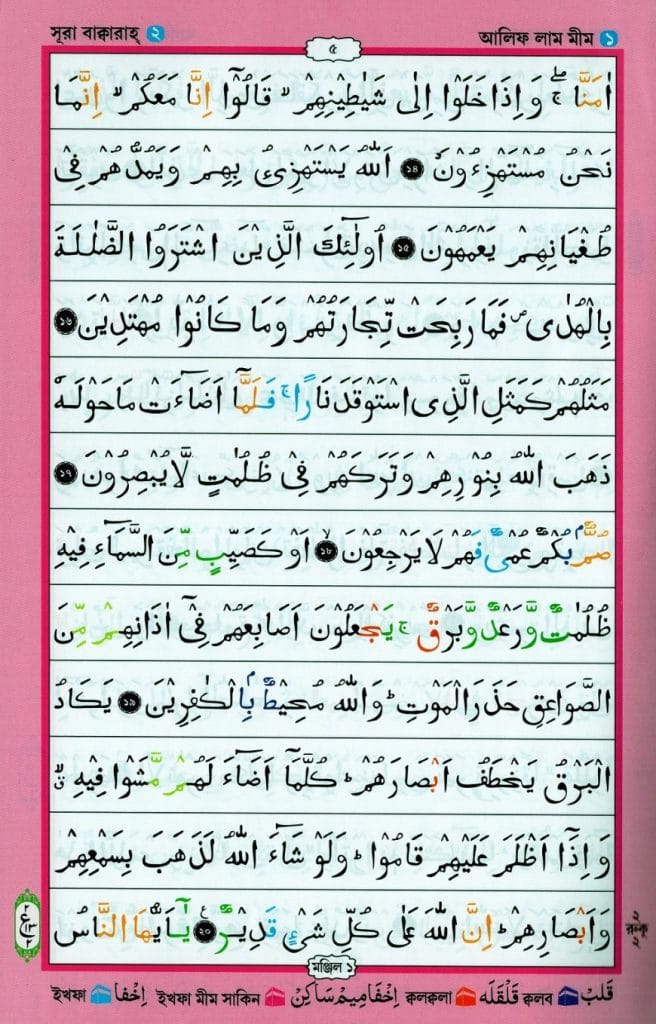 সূরা বাক্বারাহ্ ২
৫
আলিফ লাম মীম ১
اٰمَنَّا ۖۚ وَ اِذَا خَلَوْا اِلٰی شَیٰطِیْنِهِمْ ۙ قَالُوْۤا اِنَّا مَعَكُمْ ۙ اِنَّمَا
نَحْنُ مُسْتَهْزِءُوْنَ ১৪ اَللّٰهُ یَسْتَهْزِئُ بِهِمْ وَیَمُدُّهُمْ فِیْ
طُغْیَانِهِمْ یَعْمَهُوْنَ ১৫ اُولٰٓئِكَ الَّذِیْنَ اشْتَرَوُا الضَّلٰلَةَ
بِالْهُدٰی ۪ فَمَا رَبِحَتْ تِّجَارَتُهُمْ وَمَا كَانُوْا مُهْتَدِیْنَ ১৬
مَثَلُهُمْ كَمَثَلِ الَّذِی اسْتَوْقَدَ نَارًا ۚ فَلَمَّاۤ اَضَآءَتْ مَا حَوْلَهٗ
ذَهَبَ اللّٰهُ بِنُوْرِهِمْ وَتَرَكَهُمْ فِیْ ظُلُمٰتٍ لَّا یُبْصِرُوْنَ ১৭
صُمٌّۢ بُكْمٌ عُمْیٌ فَهُمْ لَا یَرْجِعُوْنَ ۙ ১৮ اَوْ كَصَیِّبٍ مِّنَ السَّمَآءِ فِیْهِ
ظُلُمٰتٌ وَّرَعْدٌ وَّبَرْقٌ ۚ یَجْعَلُوْنَ اَصَابِعَهُمْ فِیْۤ اٰذَانِهِمْ مِّنَ
الصَّوَاعِقِ حَذَرَ الْمَوْتِ ؕ وَاللّٰهُ مُحِیْطٌۢ بِالْكٰفِرِیْنَ ১৯ یَكَادُ
الْبَرْقُ یَخْطَفُ اَبْصَارَهُمْ ؕ كُلَّمَاۤ اَضَآءَ لَهُمْ مَّشَوْا فِیْهِ ۙۗ
وَ اِذَاۤ اَظْلَمَ عَلَیْهِمْ قَامُوْا ؕ وَلَوْ شَآءَ اللّٰهُ لَذَهَبَ بِسَمْعِهِمْ
وَاَبْصَارِهِمْ ؕ اِنَّ اللّٰهَ عَلٰی كُلِّ شَیْءٍ قَدِیْرٌ ২০ ع یٰۤاَیُّهَا النَّاسُ
২ ع ১৩ ২
২ রুকূ ২
মঞ্জিল ১
ইখফা اِخْفَا ইখফা মীম সাকিন اِخْفَا مِیْم سَاكِنْ ক্বলক্বলা قَلْقَلَه ক্বলব قَلْبْ